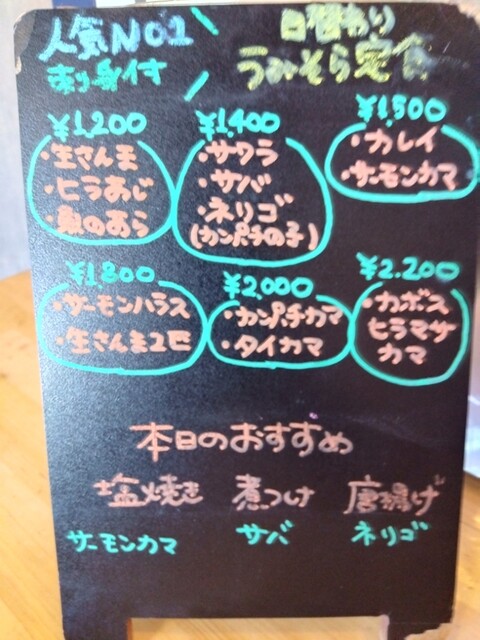 人気NO1
刺身付
日替わり
うみそら定食
¥1,200
・生さんま
・ヒラあじ
・魚のあら
¥1,400
・サワラ
・サバ
・ネリゴ
(カンパチの子)
¥1,500
・カレイ
・サーモンカマ
¥1,800
・サーモンハラス
・生さんま2匹
¥2,000
・カンパチカマ
・タイカマ
¥2.200
・カボス
ヒラマサ
カマ
本日のおすすめ
塩焼き 煮つけ 唐揚げ
サーモンカマ サバ ネリゴ